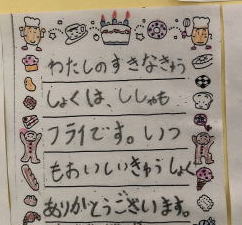 わたしのすきなきゅう
しょくは、ししゃも
フライです。いつ
もおいしいきゅうしょく
ありがとうございます。